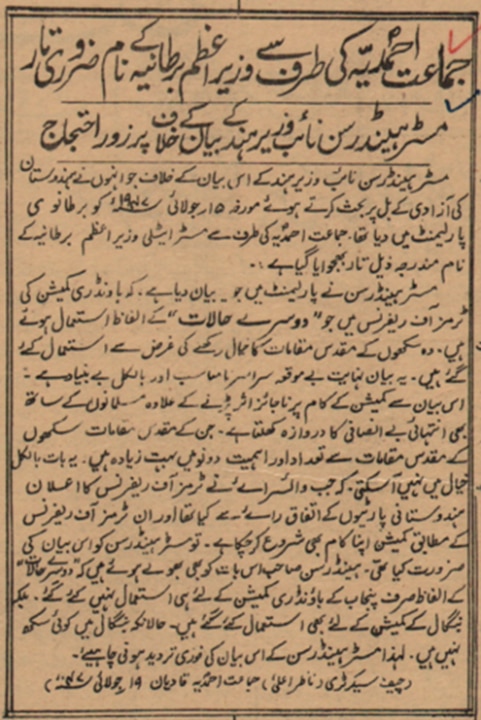 جماعت احمدیہ کی طرف سے وزیر اعظم برطانیہ کے نام ضروری تار
مسٹر ہینڈرسن نائب وزیر ہند کے بیان کے خلاف پر زور احتجاج
مسٹر ہینڈرسن نائب وزیر ہند کے اس بیان کے خلاف جو انہوں نے ہندوستان
کی آزادی کے بل پر بحث کرتے ہوئے مورخہ ۱۵ جولائی ۱۹۴۷ء کو برطانوی
پارلیمنٹ میں دیا تھا۔ جماعت احمدیہ کی طرف سے مسٹر ایٹلی وزیر اعظم برطانیہ کے
نام مندرجہ ذیل تار بھجوایا گیا ہے :۔
مسٹر ہینڈرسن نے پارلیمنٹ میں جو یہ بیان دیا ہے۔ کہ باؤنڈری کمیشن کی
ٹرمز آف ریفرنس میں جو "دوسرے حالات" کے الفاظ استعمال ہوئے
ہیں۔ وہ سکھوں کے مقدس مقامات کا خیال رکھنے کی غرض سے استعمال کئے
گئے ہیں۔ یہ بیان نہایت بے موقعہ سراسر نامناسب اور بالکل بے بنیاد ہے۔
اس بیان سے کمیشن کے کام پر ناجائز اثر پڑنے کے علاوہ مسلمانوں کے ساتھ
بھی انتہائی بے انصافی کا دروازہ کھلتا ہے۔ جن کے مقدس مقامات سکھوں
کے مقدس مقامات سے تعداد اور اہمیت دونو میں بہت زیادہ ہیں۔ یہ بات بالکل
خیال میں نہیں آسکتی۔ کہ جب وائسرائے نے ٹرمز آف ریفرنس کا اعلان
ہندوستانی پارٹیوں کے اتفاق رائے سے کیا تھا اور ان ٹرمز آف ریفرنس
کے مطابق کمیشن اپنا کام بھی شروع کر چکا ہے۔ تو مسٹر ہینڈرسن کو اس بیان کی
ضرورت کیا تھی۔ ہینڈرسن صاحب اس بات کو بھی بھولے ہوئے ہیں کہ "دوسرے حالات"
کے الفاظ صرف پنجاب کے باؤنڈری کمیشن کے لئے ہی استعمال نہیں کئے گئے۔ بلکہ
بنگال کے کمیشن کے لئے بھی استعمال کئے گئے ہیں۔ حالانکہ بنگال میں کوئی سکھ
نہیں ہیں۔ لہذا مسٹر ہینڈرسن کے اس بیان کی فوری تردید ہونی چاہیے۔
(چیف سیکرٹری (ناظر اعلیٰ) جماعت احمدیہ قادیان ۱۹ جولائی ۱۹۴۷ء)